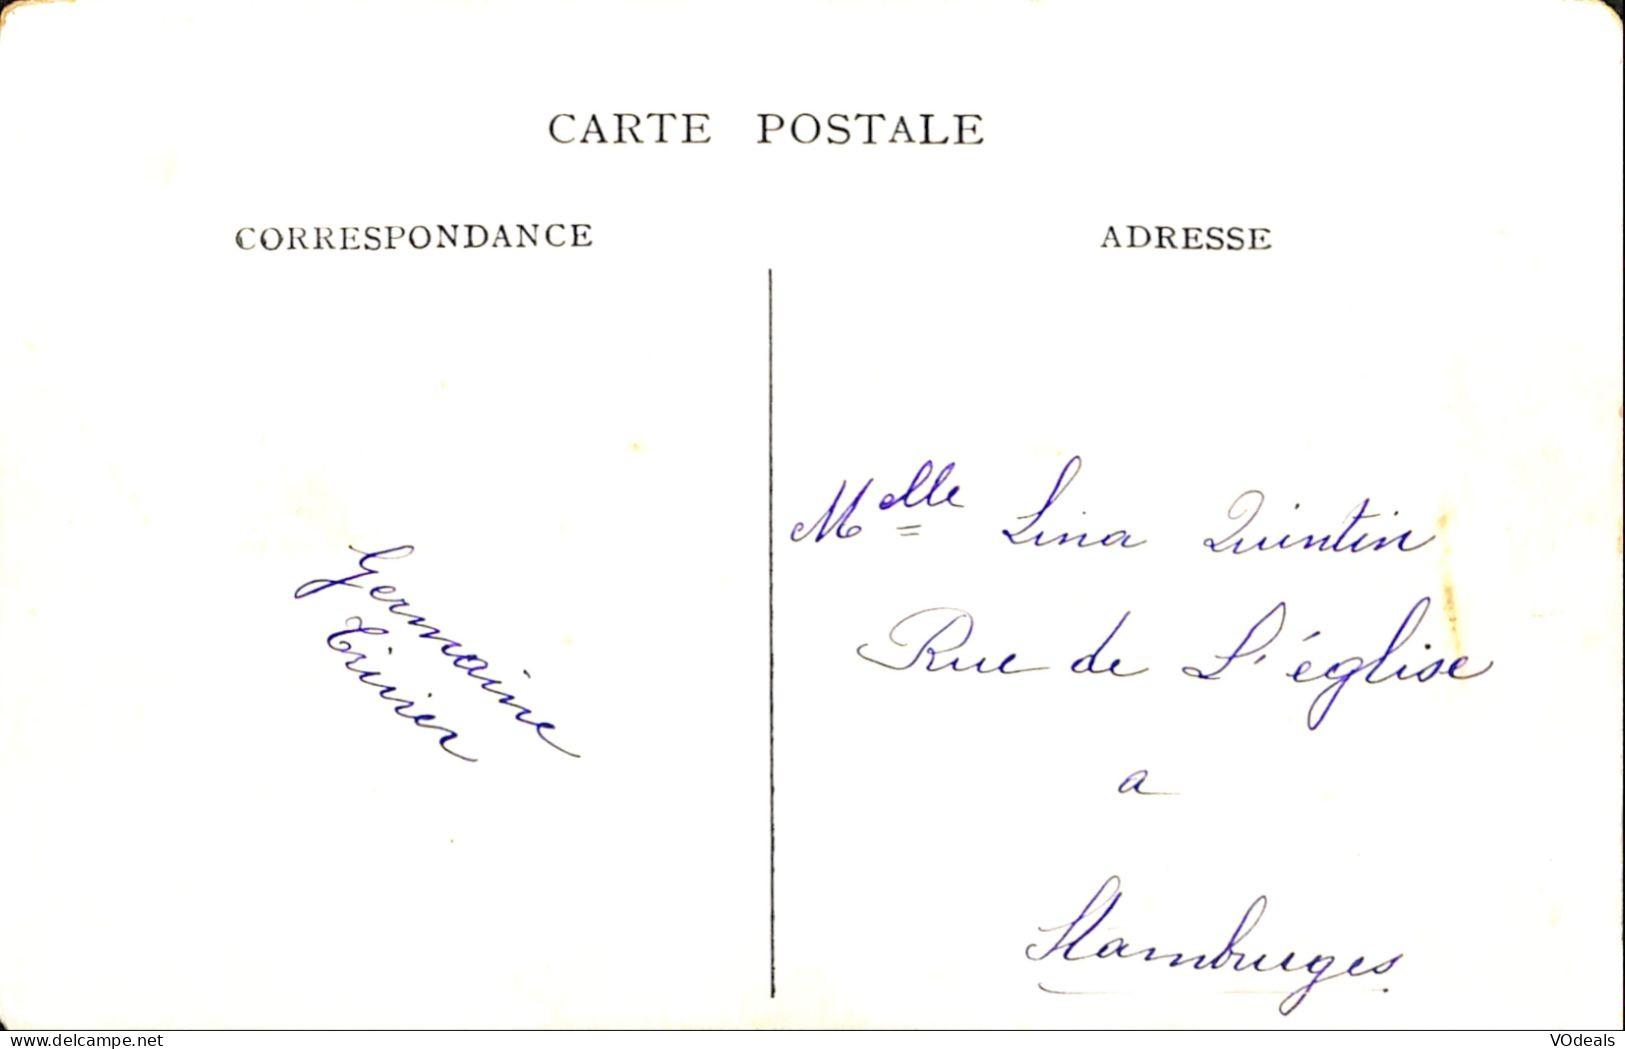 CARTE POSTALE
CORRESPONDANCE
ADRESSE
Germaine
Melle Lina Quintin
Rue de L'église
a
Stambruges
delcampe.net
VOdeals